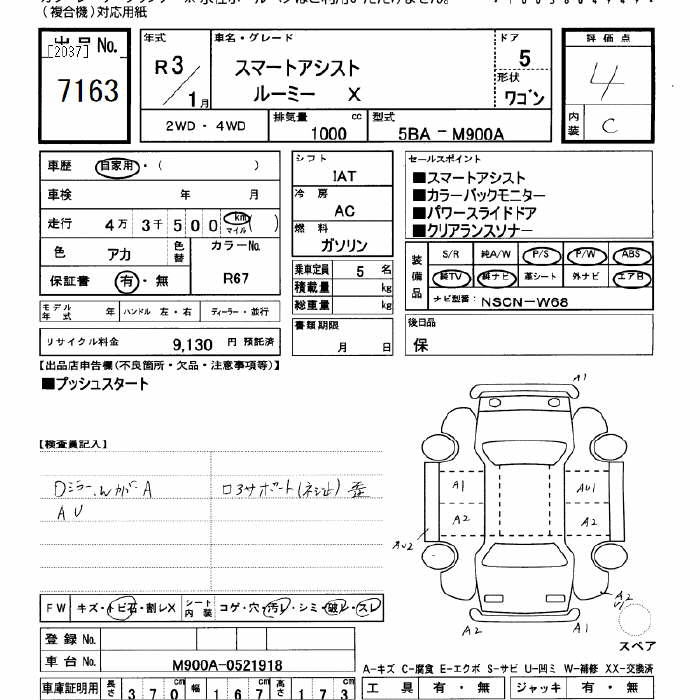 (複合機)対応用紙
出品 No.
[2037]
7163
年式
R 3 / 1 月
車名・グレード
スマートアシスト
ルーミー X
ドア
5
形状
ワゴン
2WD・4WD
排気量 cc
1000
型式
5BA－M900A
評価点
4
内装
C
車歴 自家用・( )
車検 年 月
走行 4万 3千 5 0 0 km マイル ( )
色 アカ 色替
カラーNo.
R67
保証書 有・無
モデル年式 年 ハンドル 左・右 ディーラー・並行
リサイクル料金 9,130 円 預託済
シフト
IAT
冷房
AC
燃料
ガソリン
乗車定員 5 名
積載量 kg
総重量 kg
書類期限
月 日
セールスポイント
■スマートアシスト
■カラーバックモニター
■パワースライドドア
■クリアランスソナー
装備品
S/R 純A/W P/S P/W ABS
純TV 純ナビ 革シート 外ナビ エアB
ナビ型番: NSCN-W68
後日品
保
【出品店申告欄(不良箇所・欠品・注意事項等)】
■プッシュスタート
【検査員記入】
Dミラー、Wカバー A
A U
ロアサポート(ネジ止) 歪
A1
A1 AU1
A2 A2
AU2
A2
A2 A1
スペア
FW キズ・トビ石・割レX シート内装 コゲ・穴・汚レ・シミ・破レ・スレ
登録 No.
車台 No. M900A-0521918
A-キズ C-腐食 E-エクボ S-サビ U-凹ミ W-補修 XX-交換済
車庫証明用 長さ 370cm 幅 167cm 高さ 173cm
工具 有・無 ジャッキ 有・無